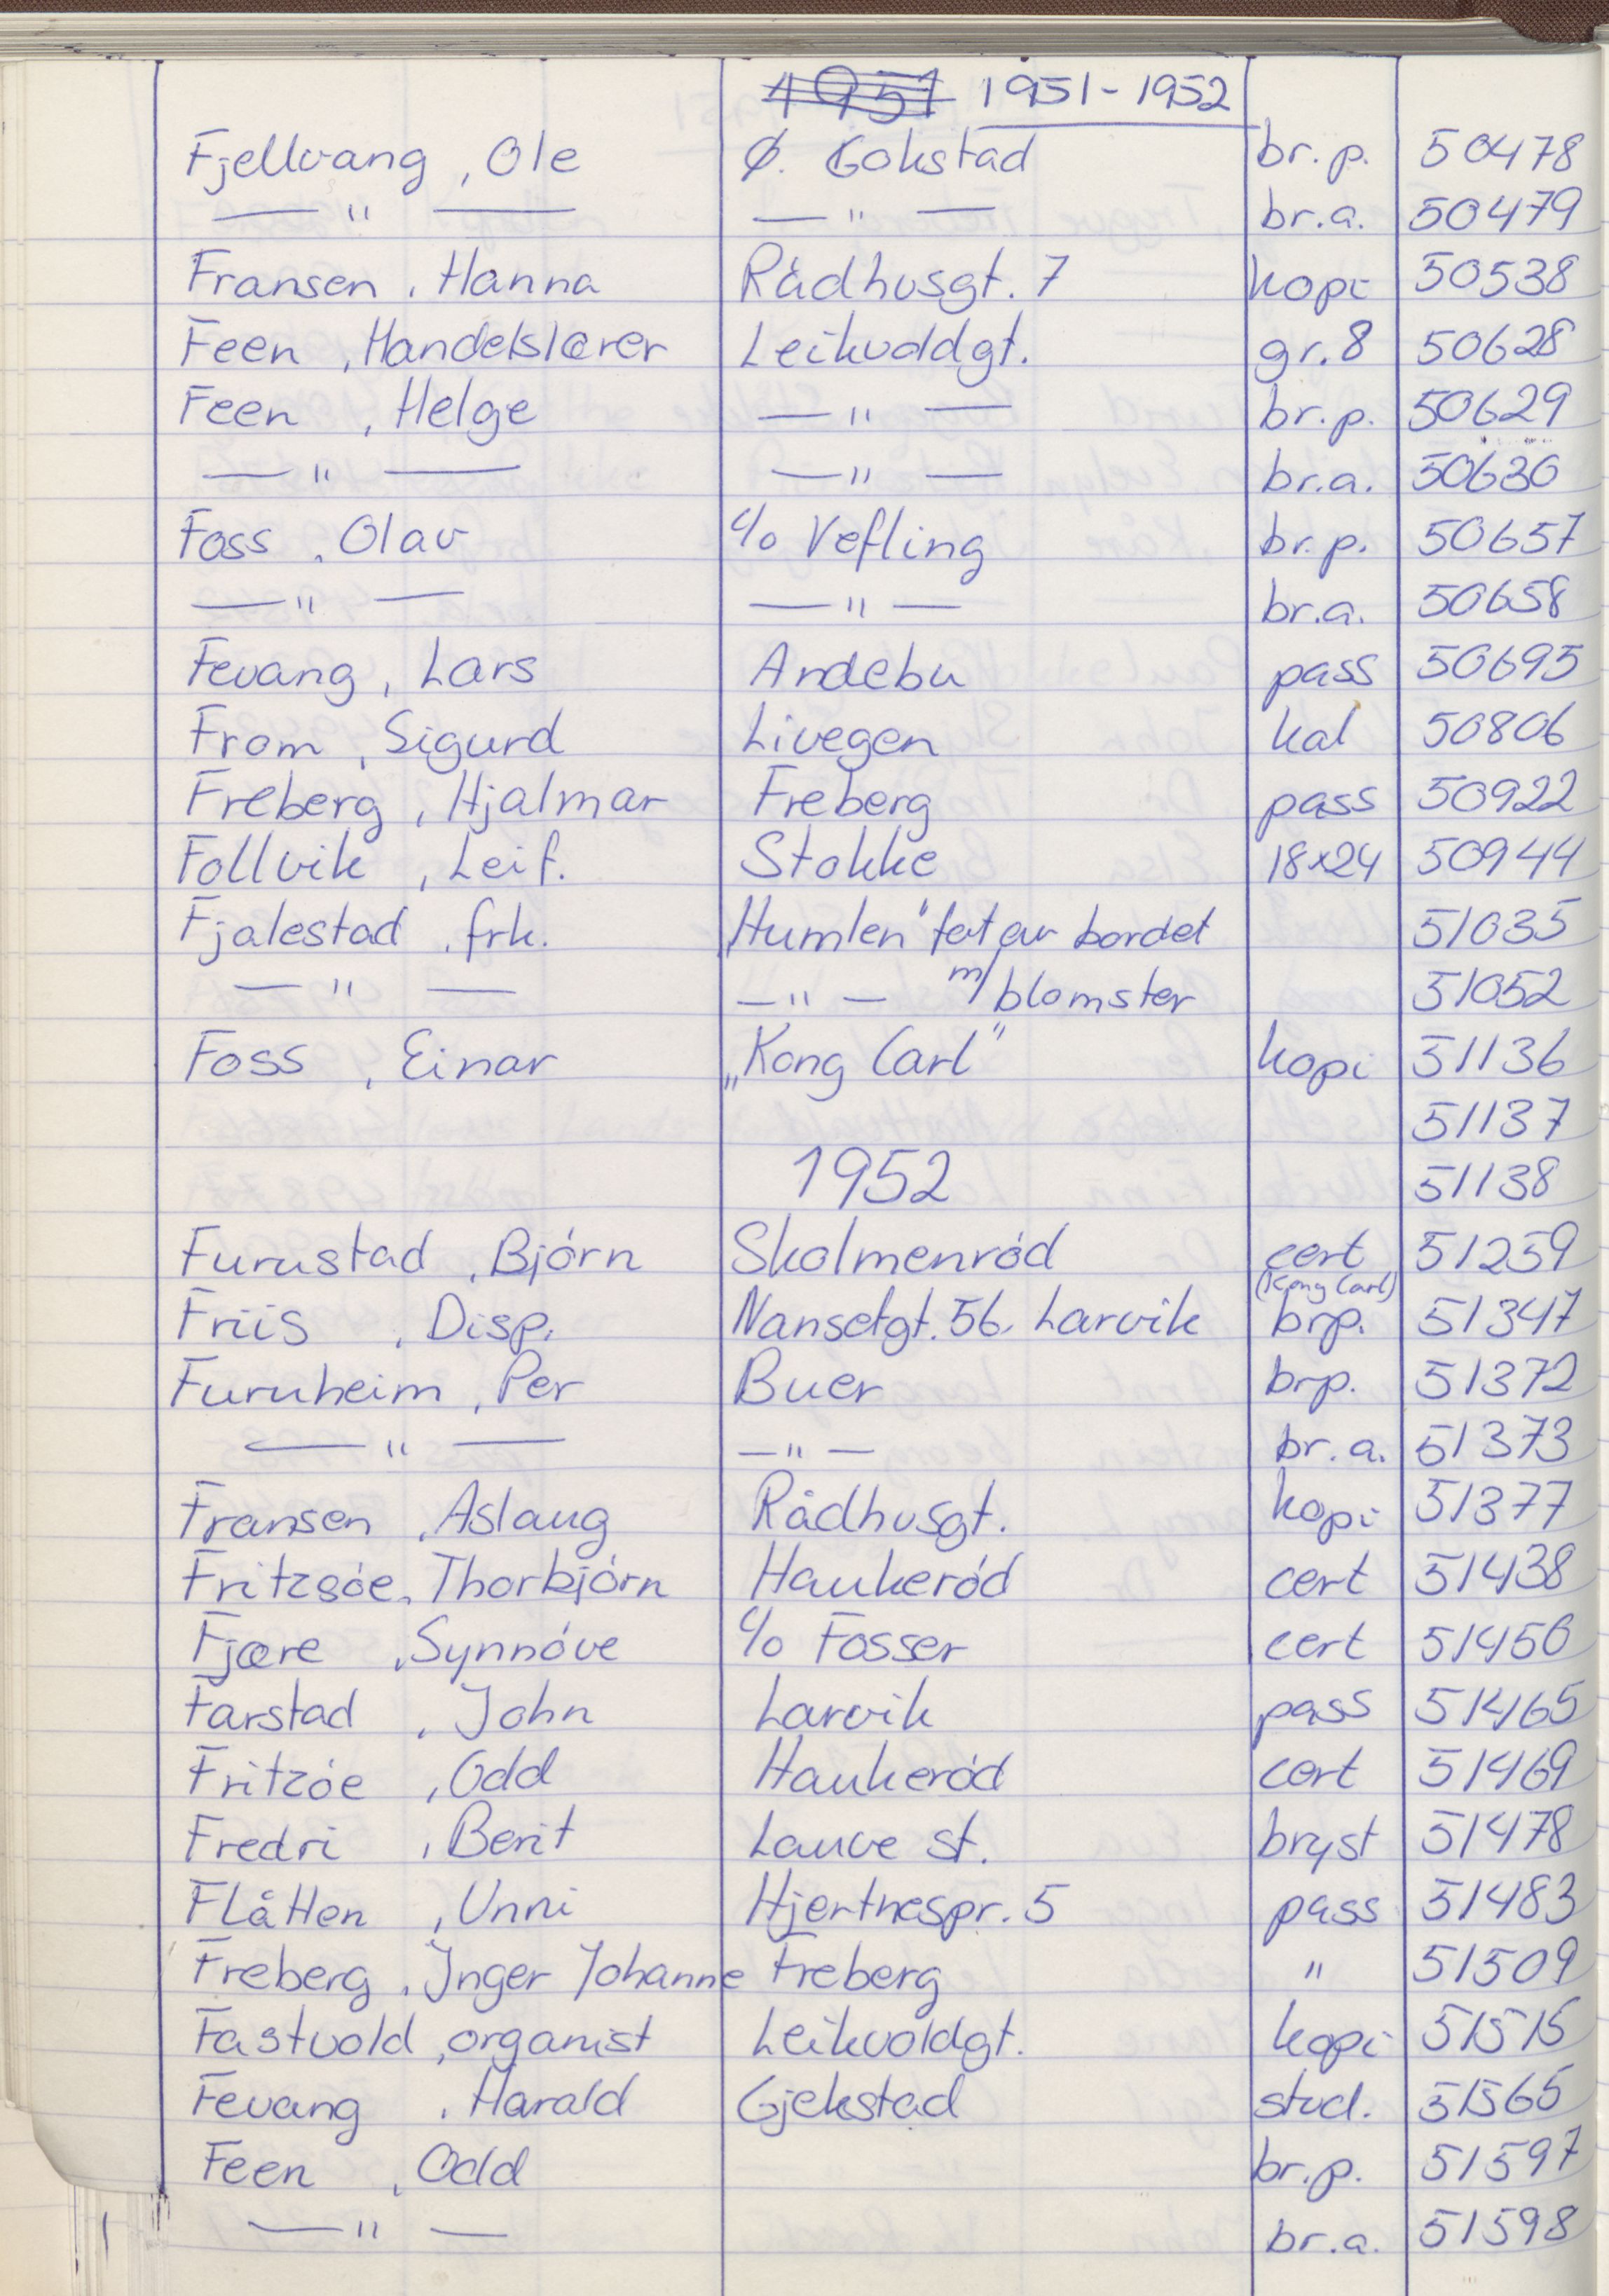 1951 1951-1952
Fjellvang, Ole Ø. Gokstad br.p. 50478
— " — — " — br.a. 50479
Fransen, Hanna Rådhusgt. 7 kopi 50538
Feen, Handelslærer Leikvoldgt. gr.8 50628
Feen, Helge — " — br.p. 50629
— " — — " — br.a. 50630
Foss, Olav c/o Vefling br.p. 50657
— " — — " — br.a. 50658
Fevang, Lars Andebu pass 50695
From, Sigurd Livegen kal 50806
Freberg, Hjalmar Freberg pass 50922
Follvik, Leif. Stokke 18x24 50944
Fjalestad, frk. „Humlen" tatt av bordet 51035
— " — — " — m/blomster 51052
Foss, Einar „Kong Carl" kopi 51136
51137
1952 51138
Furustad, Bjórn Skolmenród cert 51259
(Kong Carl)
Friis, Disp. Nansetgt. 56. Larvik brp. 51347
Furuheim, Per Buer brp. 51372
— " — — " — br.a. 51373
Fransen, Aslaug Rådhusgt. kopi 51377
Fritzsóe, Thorbjórn Haukeród cert 51438
Fjære, Synnóve c/o Fosser cert 51450
Farstad, John Larvik pass 51465
Fritzóe, Odd Haukeród cert 51469
Fredri, Berit Lauve st. bryst 51478
Flåtten, Unni Hjertnespr. 5 pass 51483
Freberg, Inger Johanne Freberg " 51509
Fastvold, organist Leikvoldgt. kopi 51515
Fevang, Harald Gjekstad stud. 51565
Feen, Odd br.p. 51597
— " — br.a. 51598